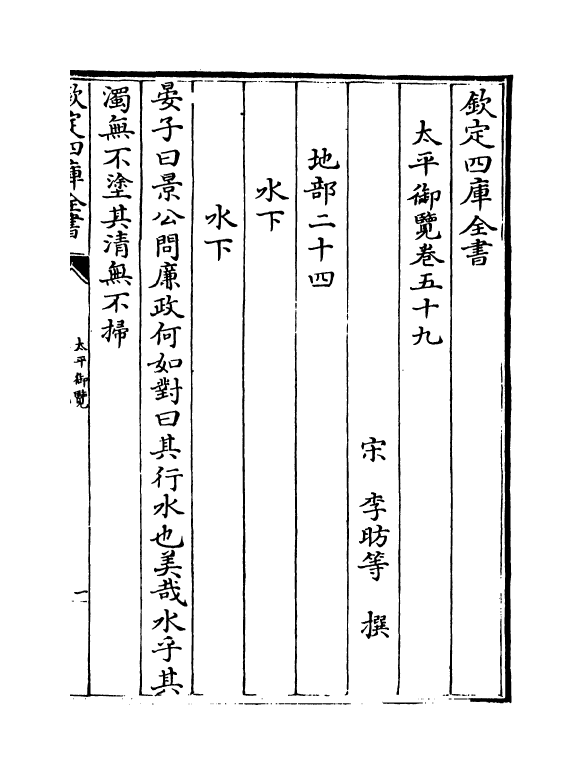 欽定四庫全書
太平御覽卷五十九
宋 李昉等 撰
地部二十四
水下
水下
晏子曰景公問廉政何如對曰其行水也美哉水乎其
濁無不塗其清無不掃
欽定四庫全書 太平御覽 一